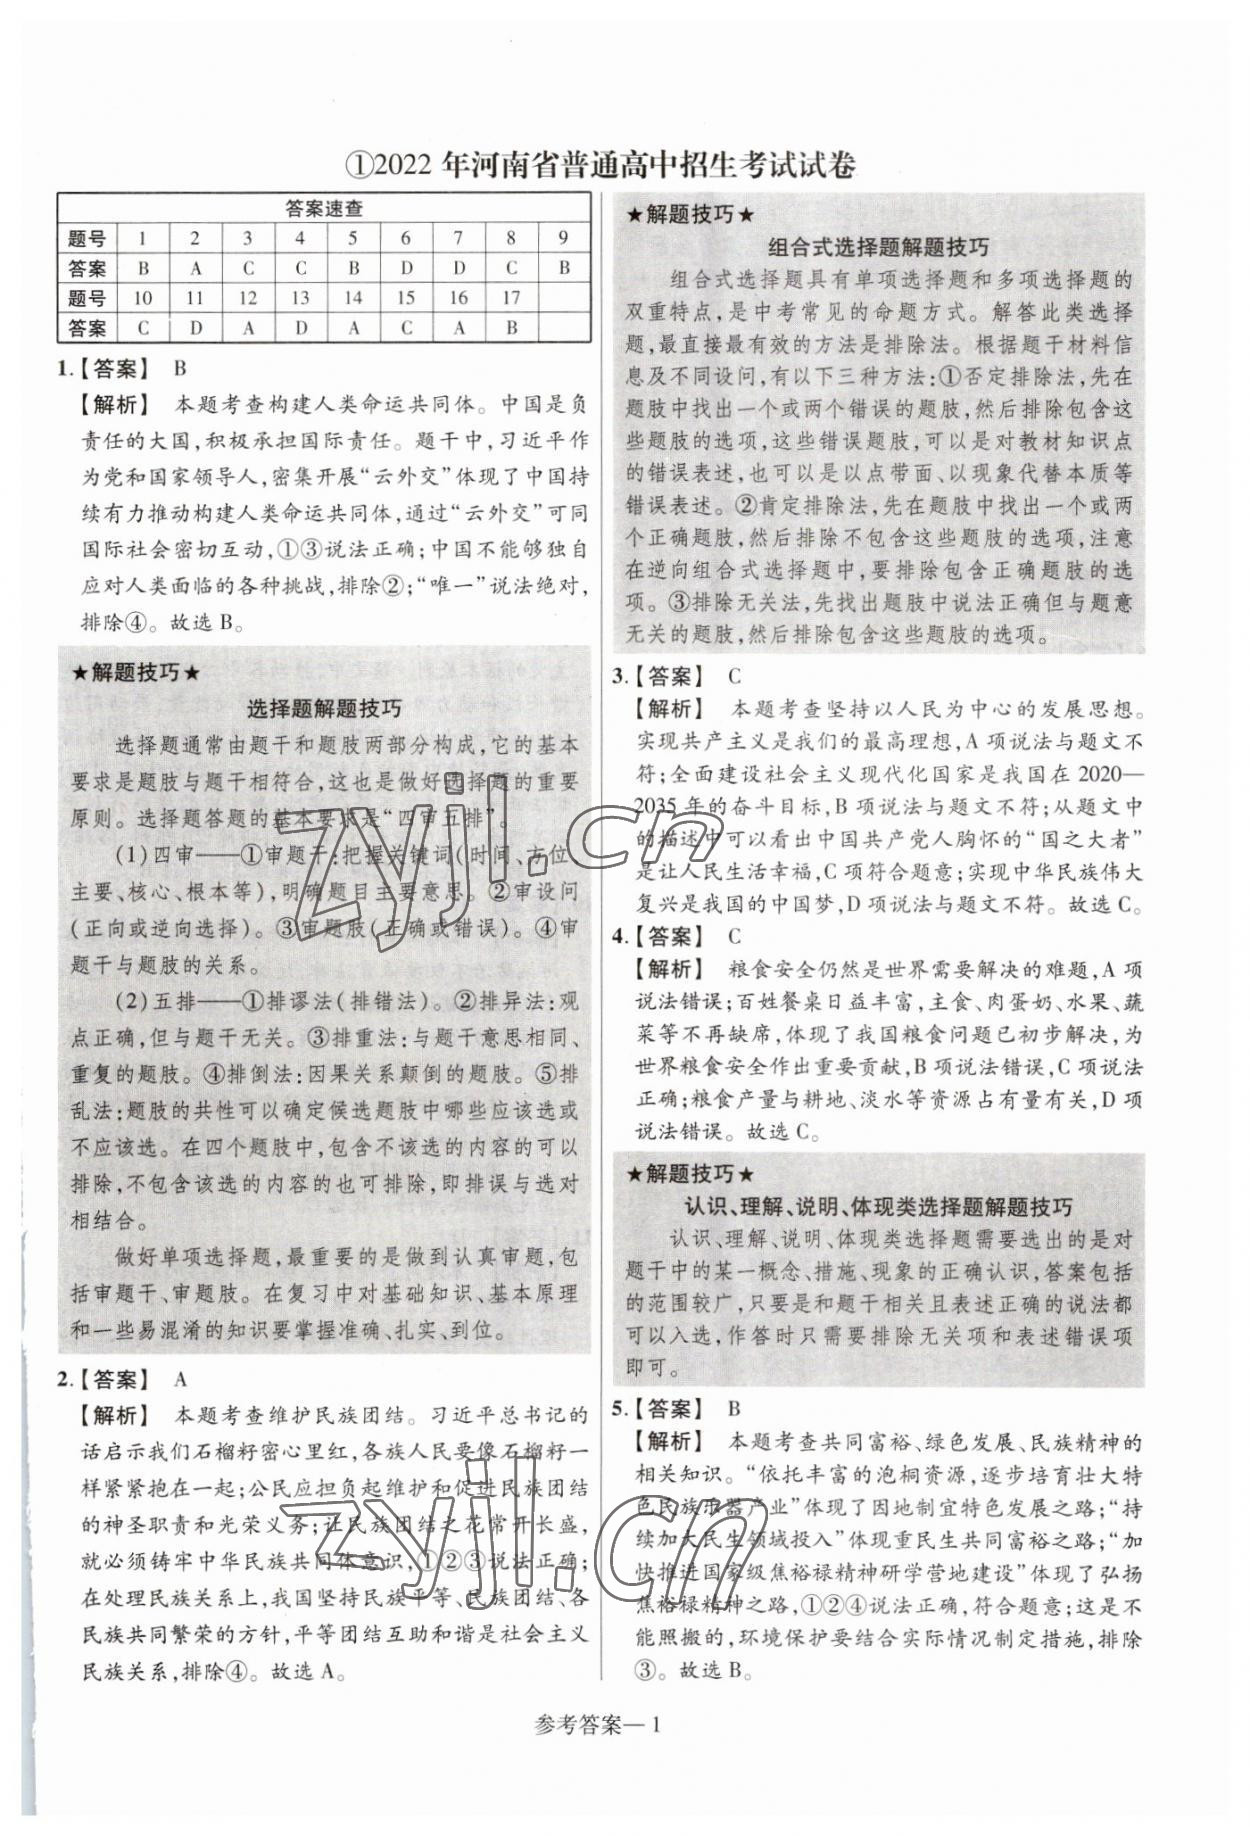 ①2022 年河南省普通高中招生考试试卷
答案速查
题号 1 2 3 4 5 6 7 8 9
答案 B A C C B D D C B
题号 10 11 12 13 14 15 16 17
答案 C D A D A C A B
1.【答案】 B
【解析】 本题考查构建人类命运共同体。中国是负
责任的大国,积极承担国际责任。题干中,习近平作
为党和国家领导人,密集开展“云外交”体现了中国持
续有力推动构建人类命运共同体,通过“云外交”可同
国际社会密切互动,①③说法正确;中国不能够独自
应对人类面临的各种挑战,排除②;“唯一”说法绝对,
排除④。故选 B。
★解题技巧★
选择题解题技巧
选择题通常由题干和题肢两部分构成,它的基本
要求是题肢与题干相符合,这也是做好选择题的重要
原则。选择题答题的基本要求是“四审五排”。
(1)四审——①审题干:把握关键词(时间、方位、
主要、核心、根本等),明确题目主要意思。②审设问
(正向或逆向选择)。③审题肢(正确或错误)。④审
题干与题肢的关系。
(2)五排——①排谬法(排错法)。②排异法:观
点正确,但与题干无关。③排重法:与题干意思相同、
重复的题肢。④排倒法:因果关系颠倒的题肢。⑤排
乱法:题肢的共性可以确定候选题肢中哪些应该选或
不应该选。在四个题肢中,包含不该选的内容的可以
排除,不包含该选的内容的也可排除,即排误与选对
相结合。
做好单项选择题,最重要的是做到认真审题,包
括审题干、审题肢。在复习中对基础知识、基本原理
和一些易混淆的知识要掌握准确、扎实、到位。
2.【答案】 A
【解析】 本题考查维护民族团结。习近平总书记的
话启示我们石榴籽密心里红,各族人民要像石榴籽一
样紧紧抱在一起;公民应担负起维护和促进民族团结
的神圣职责和光荣义务;让民族团结之花常开长盛,
就必须铸牢中华民族共同体意识,①②③说法正确;
在处理民族关系上,我国坚持民族平等、民族团结、各
民族共同繁荣的方针,平等团结互助和谐是社会主义
民族关系,排除④。故选 A。
★解题技巧★
组合式选择题解题技巧
组合式选择题具有单项选择题和多项选择题的
双重特点,是中考常见的命题方式。解答此类选择
题,最直接最有效的方法是排除法。根据题干材料信
息及不同设问,有以下三种方法:①否定排除法,先在
题肢中找出一个或两个错误的题肢,然后排除包含这
些题肢的选项,这些错误题肢,可以是对教材知识点
的错误表述,也可以是以点带面、以现象代替本质等
错误表述。②肯定排除法,先在题肢中找出一个或两
个正确题肢,然后排除不包含这些题肢的选项,注意
在逆向组合式选择题中,要排除包含正确题肢的选
项。③排除无关法,先找出题肢中说法正确但与题意
无关的题肢,然后排除包含这些题肢的选项。
3.【答案】 C
【解析】 本题考查坚持以人民为中心的发展思想。
实现共产主义是我们的最高理想,A 项说法与题文不
符;全面建设社会主义现代化国家是我国在 2020—
2035 年的奋斗目标,B 项说法与题文不符;从题文中
的描述中可以看出中国共产党人胸怀的“国之大者”
是让人民生活幸福,C 项符合题意;实现中华民族伟大
复兴是我国的中国梦,D 项说法与题文不符。故选 C。
4.【答案】 C
【解析】 粮食安全仍然是世界需要解决的难题,A 项
说法错误;百姓餐桌日益丰富,主食、肉蛋奶、水果、蔬
菜等不再缺席,体现了我国粮食问题已初步解决,为
世界粮食安全作出重要贡献,B 项说法错误,C 项说法
正确;粮食产量与耕地、淡水等资源占有量有关,D 项
说法错误。故选 C。
★解题技巧★
认识、理解、说明、体现类选择题解题技巧
认识、理解、说明、体现类选择题需要选出的是对
题干中的某一概念、措施、现象的正确认识,答案包括
的范围较广,只要是和题干相关且表述正确的说法都
可以入选,作答时只需要排除无关项和表述错误项
即可。
5.【答案】 B
【解析】 本题考查共同富裕、绿色发展、民族精神的
相关知识。“依托丰富的泡桐资源,逐步培育壮大特
色民族乐器产业”体现了因地制宜特色发展之路;“持
续加大民生领域投入”体现重民生共同富裕之路;“加
快推进国家级焦裕禄精神研学营地建设”体现了弘扬
焦裕禄精神之路,①②④说法正确,符合题意;这是不
能照搬的,环境保护要结合实际情况制定措施,排除
③。故选 B。
参考答案— 1
zyjl.cn
zyjl.cn